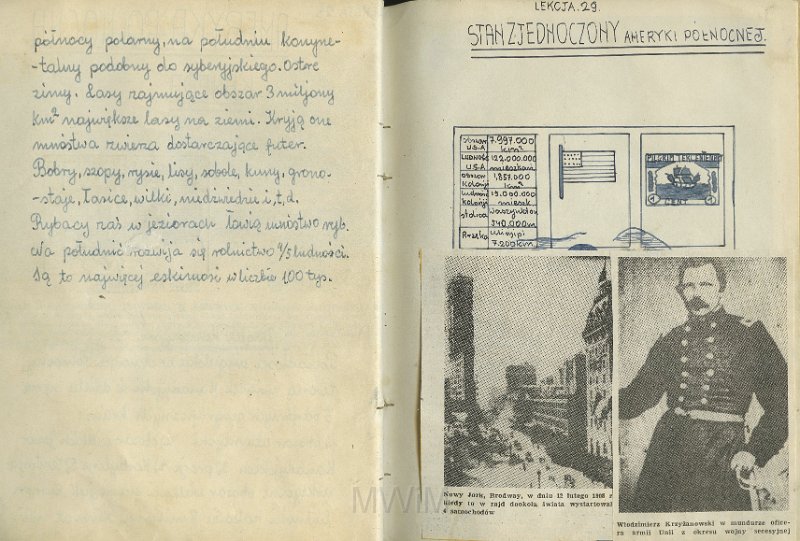 północy polarny, na południu kontyne-
-talny podobny do syberyjskiego. Ostre
zimy. Lasy zajmujące obszar 3 miljony
km² największe lasy na ziemi. Kryją one
mnóstwa zwierza dostarczające futer.
Bobry, szopy, rysie, lisy, sobole, kuny, grono-
-staje, łasice, wilki, niedźwiedzie i,t,d.
Rybacy zaś w jeziorach łowią mnóstwo ryb.
Na południe rozwija się rolnictwo ludności.
Są to najwięcej eskimosi w liczbie 100 tys.
LEKCJA.29.
STANZJEDNOCZONY AMERYKI PÓŁNOCNEJ.
obszar U.S.A 7.997.000 km²
LUDNOŚĆ U.S.A 122.000.000 mieszkan
obszar kolonji 1.857.000 km²
ludność kolonji 15.000.000 mieszk
stolica Waszyngton 540.000m
Rzeka Misisipi 7.200km
PILGRIM TERCENTENARY
1 CENT 1
Nowy Jork, Brodway, w dniu 12 lutego 1908 r
kiedy to w rajd dookoła świata wystartował
6 samochodów
Włodzimierz Krzyżanowski w mundurze ofice-
ra armii Unii z okresu wojny secesyjnej
MWM